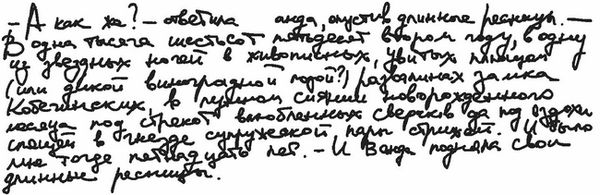 – А как же? – ответила анда, опустив длинные ресницы. –
В одна тысяча шестьсот пятьдесят втором году, в одну
из звездных ночей в живописных, увитых плющом
(или дикой виноградной лозой?) развалинах замка
в лунном сиянии новорожденного
месяца под стрекот влюбленных сверчков да под вздохи
спящей в гнезде супружеской пары стрижей. И было
мне тогда пятнадцать лет. – И Ванда подняла свои
длинные ресницы.